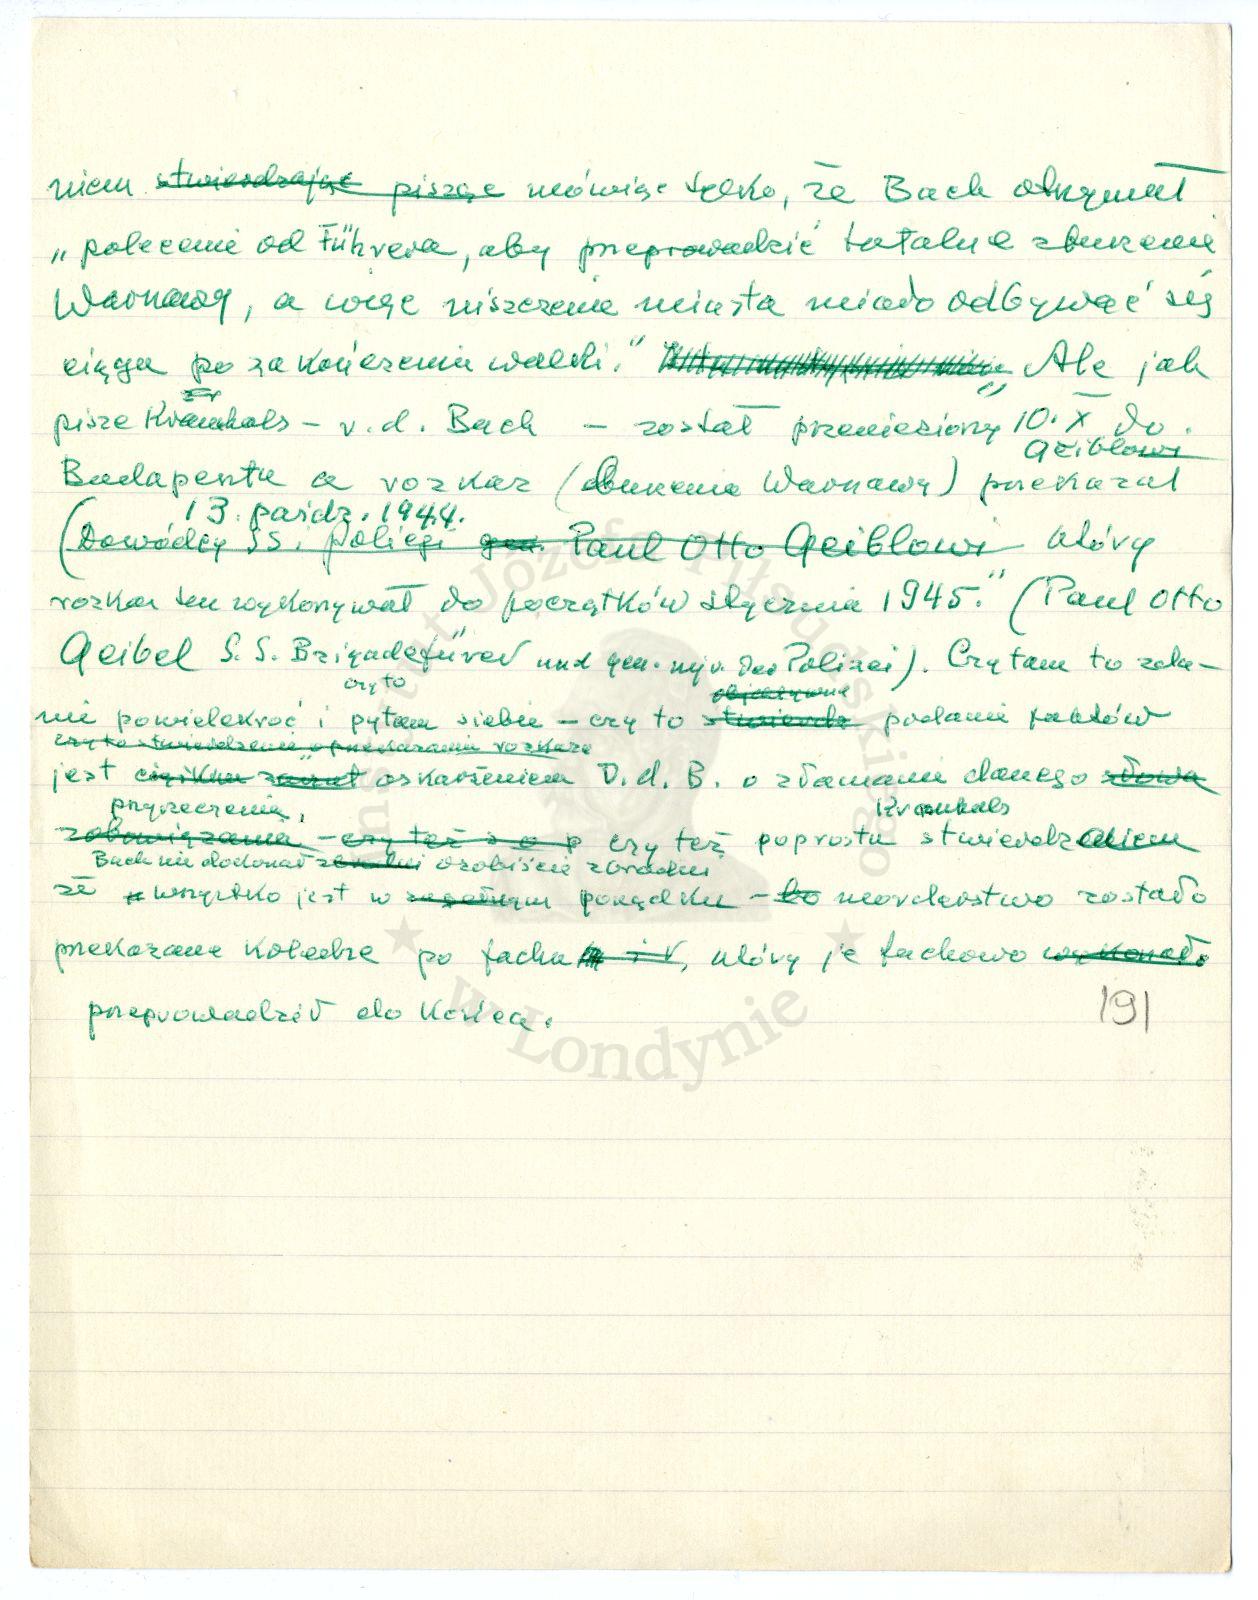 niem stwierdzając pisząc mówiąc tylko, że Bach otrzymał
„polecenie od Führera, aby przeprowadzić totalne zburzenie
Warszawy, a więc niszczenie miasta miało odbywać się
ciągu po zakończeniu walki." Ale jak
pisze Krannhals – v. d. Bach – został przeniesiony 10. X do
Geiblowi
Budapesztu a rozkaz (zburzenia Warszawy) przekazał
13 paźdz. 1944.
(Dowódcy SS i Policji gen. Paul Otto Geiblowi który
rozkaz ten wykonywał do początków stycznia 1945." (Paul Otto
Geibel S.S. Brigadeführer und gen. mjr. der Polizei). Czytam to zda-
czy to objektywne
nie powielekroć i pytam siebie – czy to stwierdz podanie faktów
czy to stwierdzenie o przekazaniu rozkazu
jest oskarżeniem V. d. B. o złamanie danego słowa
przyrzeczenia, Krannhals
zobowiązania – czy też z o p czy też poprostu stwierdzeniem
Bach nie dokonał osobiście zbrodni
że wszystko jest w porządku – bo morderstwo zostało
przekazane koledze po fachu, który je fachowo wykonał
przeprowadził do końca.
191
Instytut Józefa Piłsudskiego
w Londynie